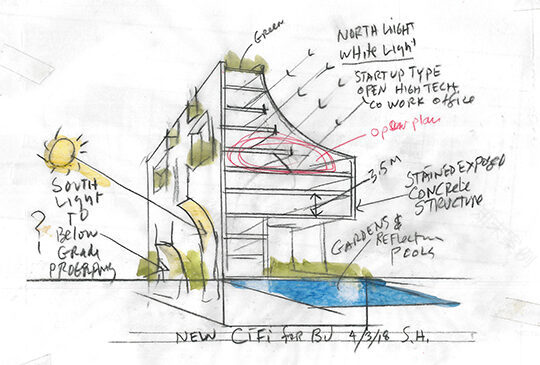 Green
NORTH LIGHT
WHITE LIGHT
START UP TYPE
OPEN HIGH TECH
CO WORK OFFICE
open plan
3.5M
STAINED EXPOSED
CONCRETE
STRUCTURE
SOUTH
LIGHT
TO
Below
GRADE
PROGRAMS
?
GARDENS &
REFLECTION
POOLS
NEW CiFi for BU 4/3/18 S.H.